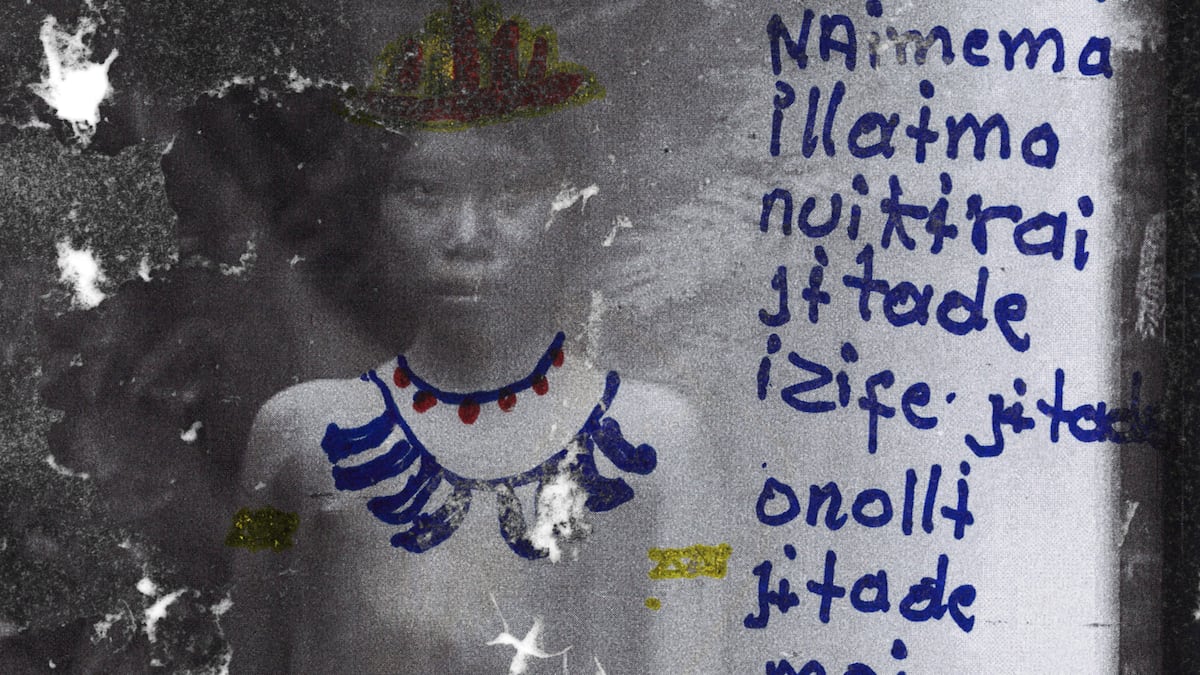 NAimema
illaɨmo
nuikɨrai
jɨtade
izife. jɨtade
onollɨ
jɨtade
moi